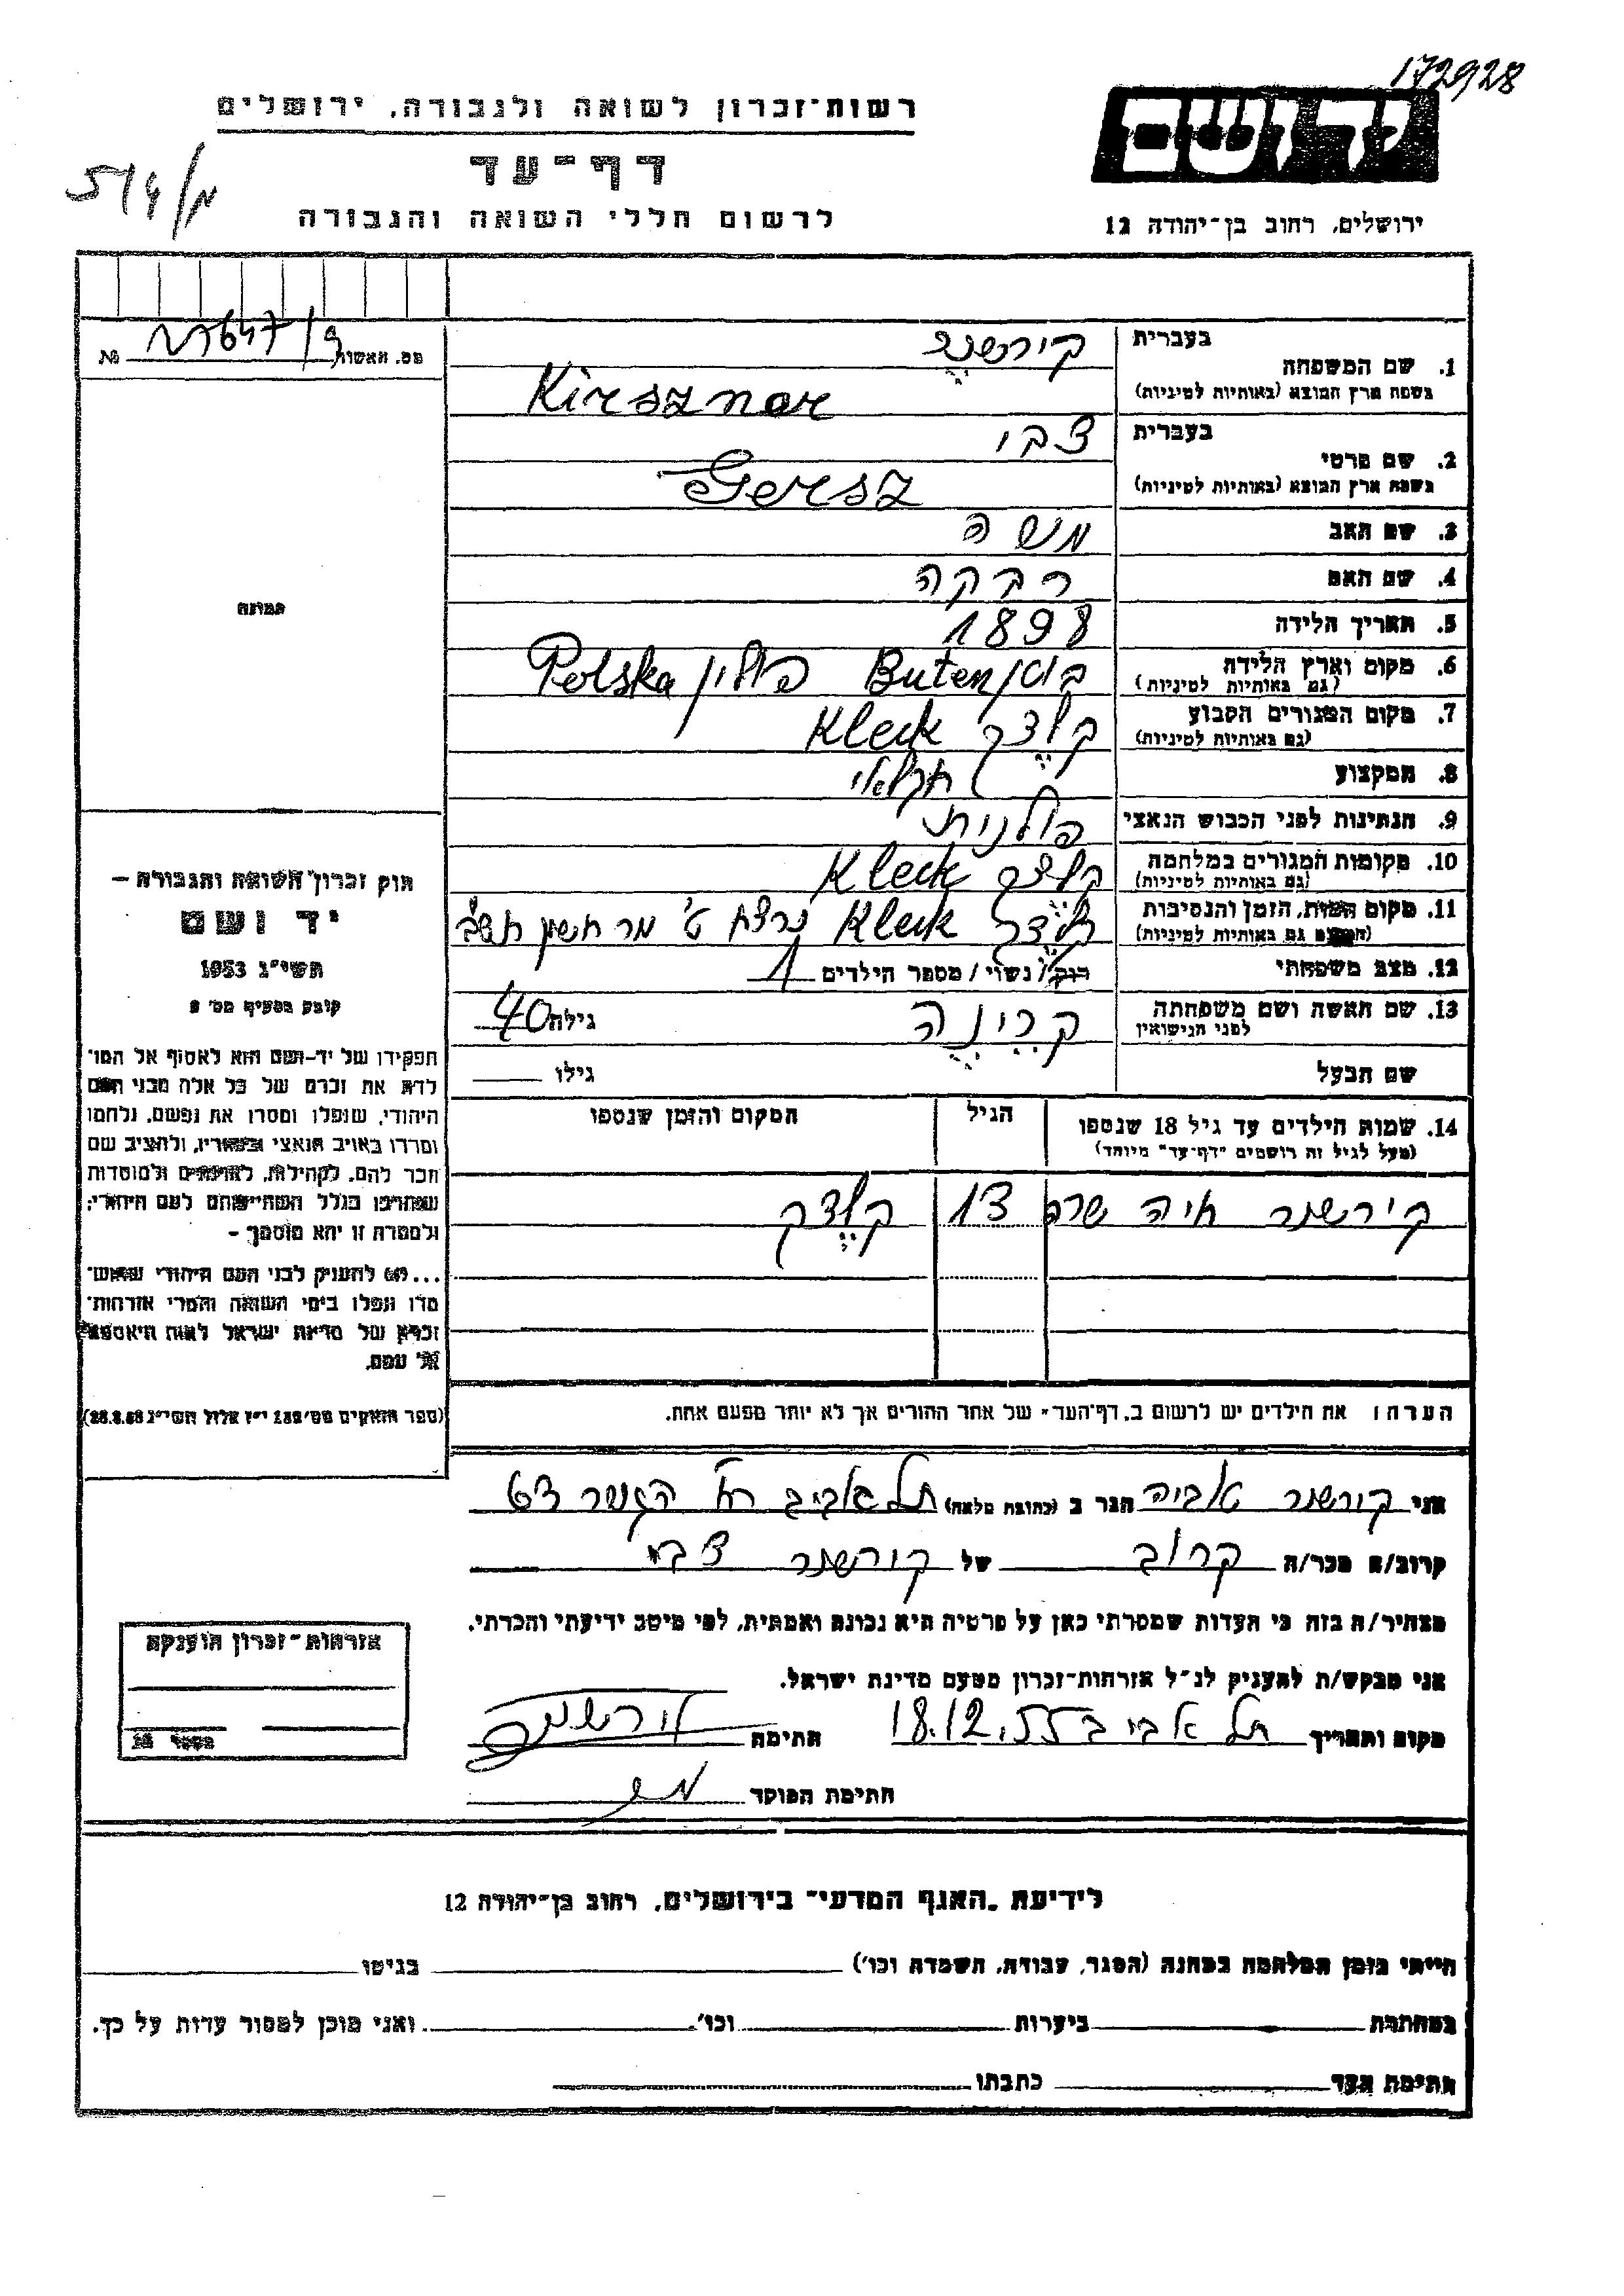 172928
יד ושם
ירושלים, רחוב בן־יהודה 12
רשות־זכרון לשואה ולגבורה, ירושלים
דף־עד
לרשום חללי השואה והגבורה
1. שם המשפחה בעברית קירשנר
בשפת ארץ המוצא (באותיות לטיניות) Kirsznar
2. שם פרטי בעברית צבי
בשפת ארץ המוצא (באותיות לטיניות) Gersz
3. שם האב משה
4. שם האם רבקה
5. תאריך הלידה 1898
6. מקום וארץ הלידה Buten פולין Polska
(גם באותיות לטיניות)
7. מקום המגורים הקבוע קלצק Kleck
(גם באותיות לטיניות)
8. המקצוע חקלאי
9. הנתינות לפני הכבוש הנאצי פולנית
10. מקומות המגורים במלחמה קלצק Kleck
(גם באותיות לטיניות)
11. מקום המות, הזמן והנסיבות קלצק Kleck נרצח ט' מר חשון תש"ב
(המקום גם באותיות לטיניות)
12. מצב משפחתי רווק / נשוי / מספר הילדים 1
13. שם האשה ושם משפחתה לפני הנישואין גילה 40
שם הבעל גילו
14. שמות הילדים עד גיל 18 שנספו הגיל המקום והזמן שנספו
(מעל לגיל זה רושמים "דף־עד" מיוחד)
קירשנר חיה שרה 13 קלצק
הערה: את הילדים יש לרשום ב"דף־העד" של אחד ההורים אך לא יותר מפעם אחת.
מס. האשות №
תמונה
חוק זכרון השואה והגבורה –
יד ושם
תשי"ג 1953
קובע בסעיף מס' 2
תפקידו של יד־ושם הוא לאסוף אל המו־
לדת את זכרם של כל אלה מבני העם
היהודי, שנפלו ומסרו את נפשם, נלחמו
ומרדו באויב הנאצי ובעוזריו, ולהציב שם
וזכר להם, לקהילות, לארגונים ולמוסדות
שנחרבו בגלל השתייכותם לעם היהודי;
ולמטרה זו יהא מוסמך –
...(4) להעניק לבני העם היהודי שהוש־
מדו ונפלו בימי השואה והמרי אזרחות־
זכרון של מדינת ישראל לאות היאספם
אל עמם.
(ספר החוקים מס' 132 י"ז אלול תשי"ג 28.8.53)
אני קירשנר אביה הגר ב (כתובת מלאה) תל אביב רח'
קרוב/ה מכר/ה קרוב של קירשנר צבי
מצהיר/ה בזה כי העדות שמסרתי כאן על פרטיה היא נכונה ואמתית, לפי מיטב ידיעתי והכרתי.
אני מבקש/ת להעניק לנ"ל אזרחות־זכרון מטעם מדינת ישראל.
מקום ותאריך תל אביב 18.12.55 חתימה
חתימת הפוקד
אזרחות־זכרון הוענקה
מספר
לידיעת "האגף המדעי" בירושלים, רחוב בן־יהודה 12
הייתי בזמן המלחמה במחנה (הסגר, עבודה, השמדה וכו') בגיטו
במחתרת ביערות וכו' ואני מוכן למסור עדות על כך.
חתימת העד כתבתו